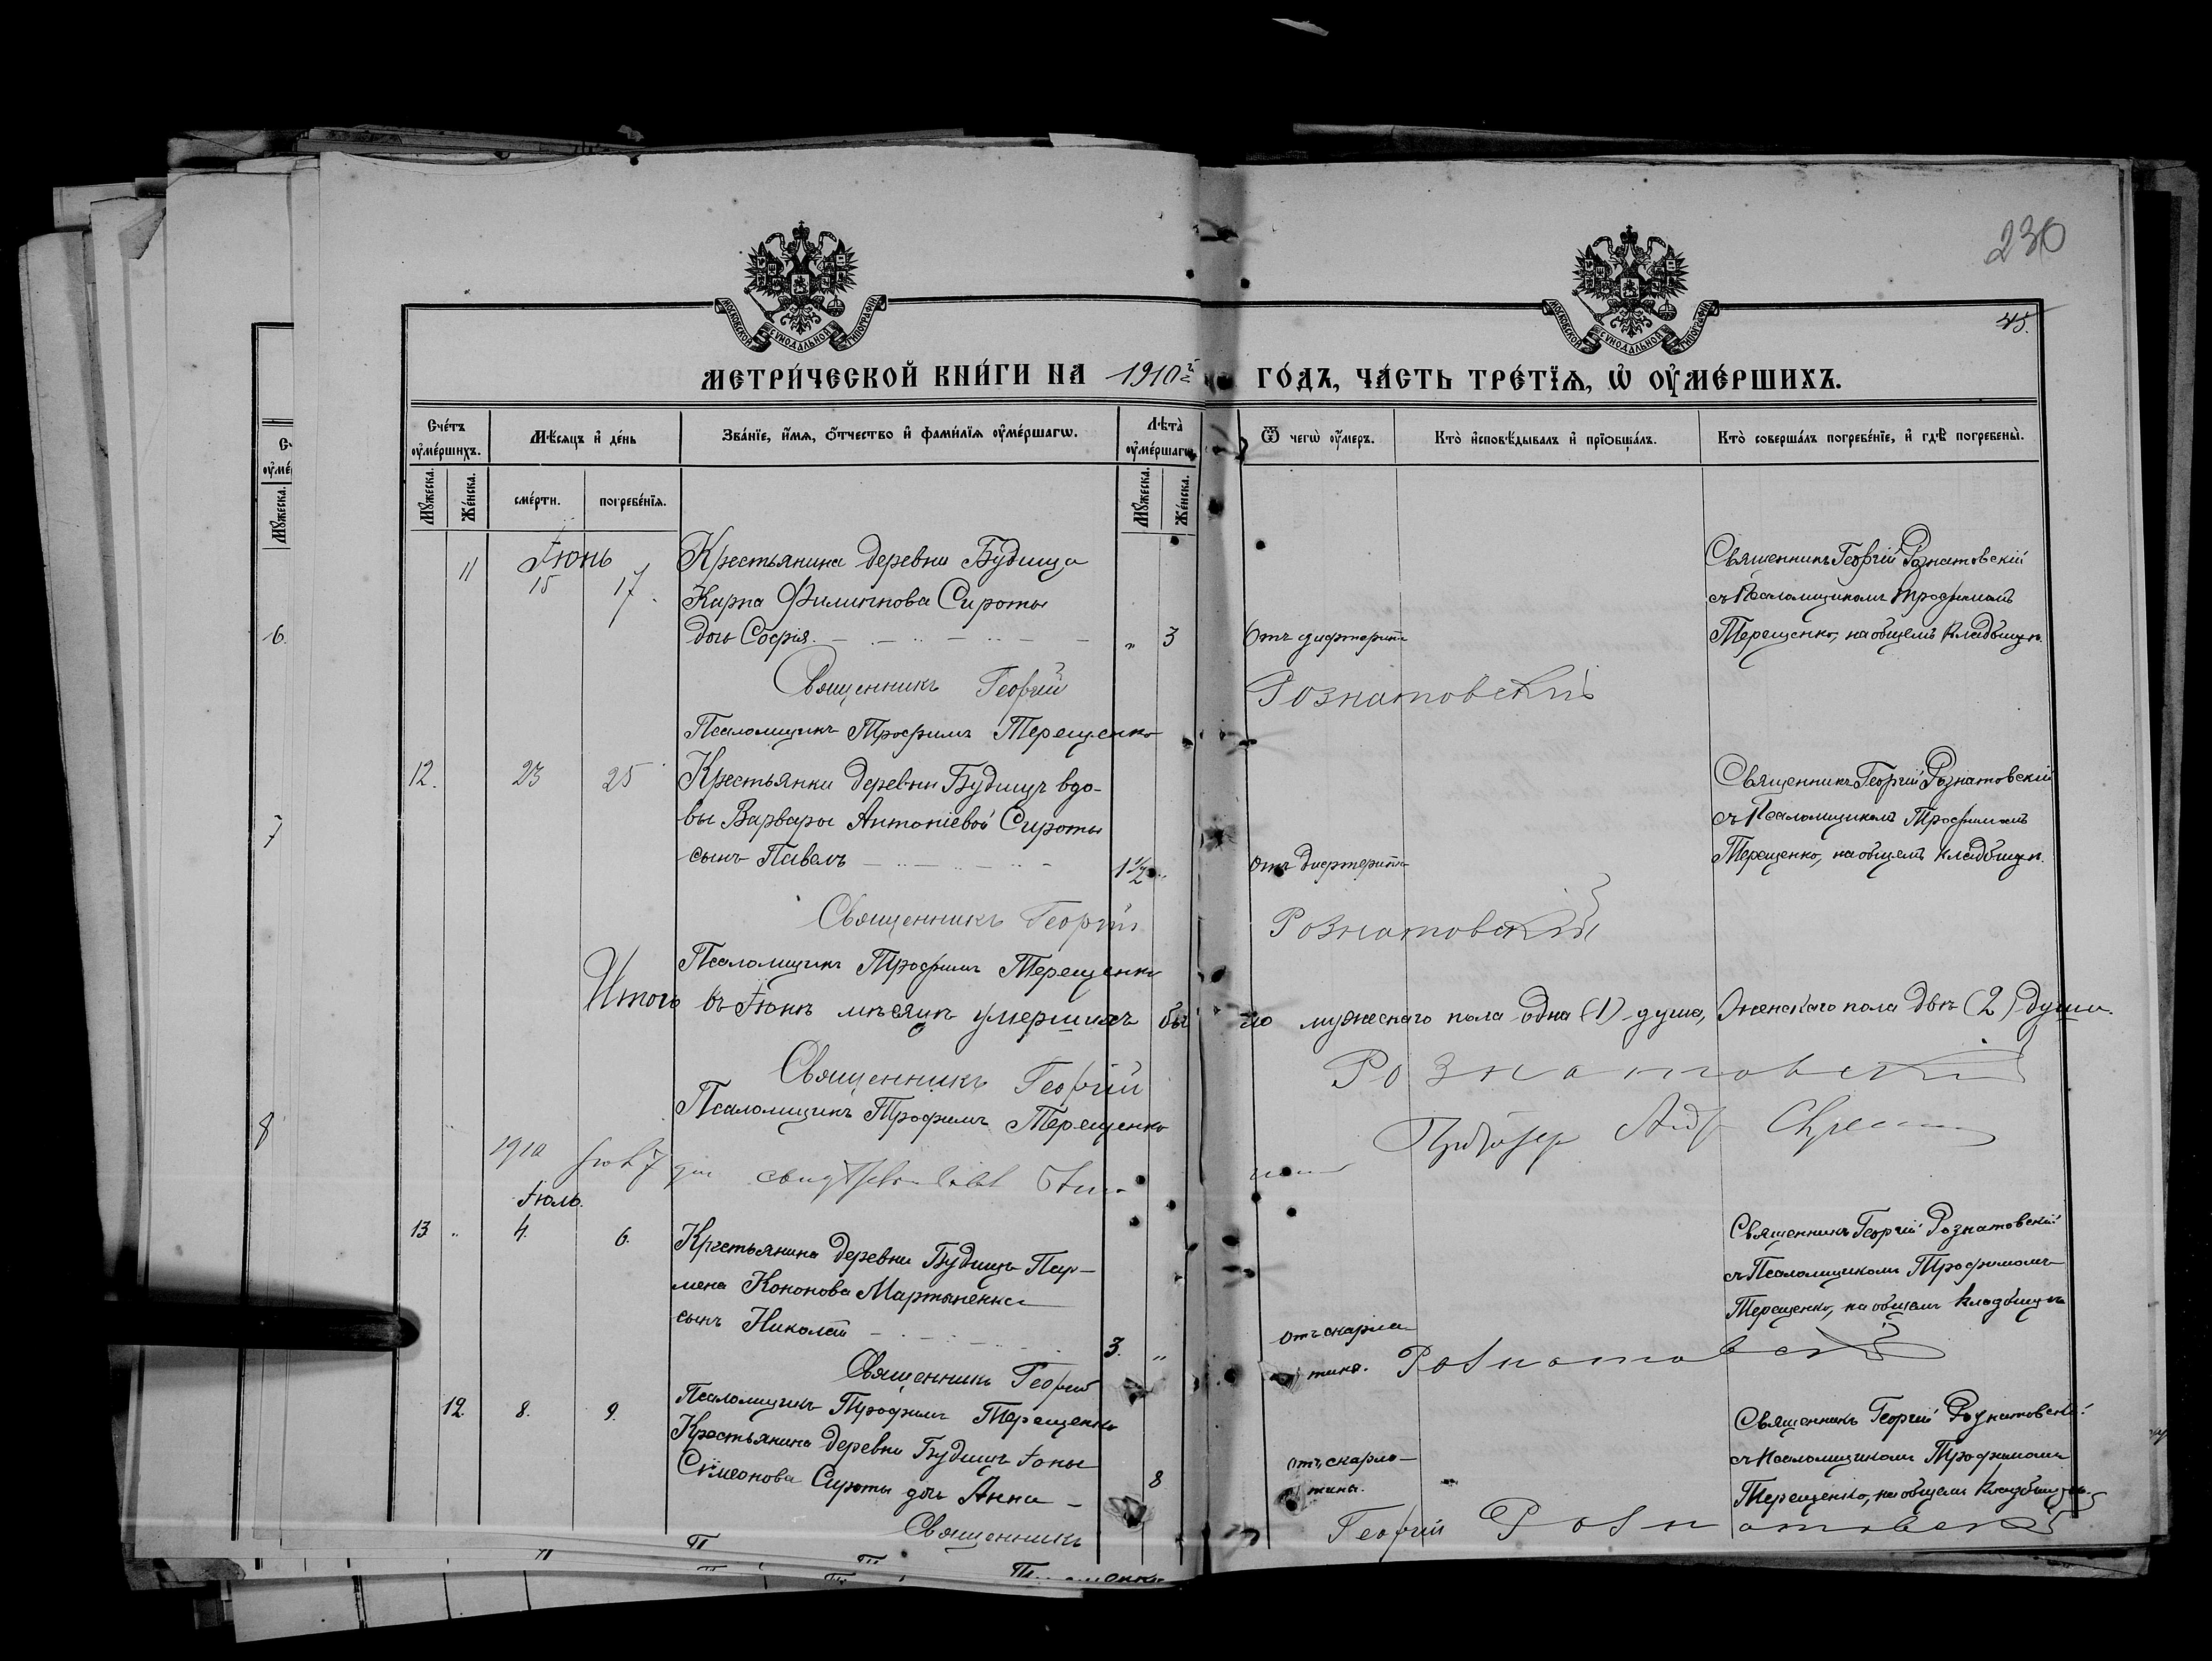 230
45.
МОСКОВСКОЙ СУНОДАЛЬНОЙ ТИПОГРАФІИ
МОСКОВСКОЙ СУНОДАЛЬНОЙ ТИПОГРАФІИ
МЕТРИ́ЧЕСКОЙ КНИ́ГИ НА 1910й ГО́ДЪ, ЧА́СТЬ ТРЕ́ТЇѦ, Ѡ҆ ОУ҆МЕ́РШИХЪ.
Сче́тъ оу҆ме́ршихъ.
Мѣ́сяцъ и҆ де́нь
Зва́нїе, и҆́мя, ѻ҆́тчество и҆ фами́лїя оу҆ме́ршагѡ.
Лѣ́та̀ оу҆ме́ршагѡ.
Ѿ чегѡ̀ оу҆́меръ.
Кто̀ и҆сповѣ́дывалъ и҆ прїобща́лъ.
Кто̀ соверша́лъ погребе́нїе, и҆ гдѣ̀ погребены̀.
Мꙋ́жеска.
Же́нска.
сме́рти.
погребе́нїя.
Мꙋ́жеска.
Же́нска.
Іюнь
11 15 17. Крестьянина деревни Будища
Карпа Филиппова Сироты
дочь Софія. „ 3 Отъ дифтерита
Священникъ Георгій Рознатовскій
съ Псаломщикомъ Трофимомъ
Терещенко, на общемъ кладбищѣ.
Священникъ Георгій Рознатовскій
Псаломщикъ Трофимъ Терещенко
12. 23 25 Крестьянки деревни Будищъ вдо-
вы Варвары Антоніевой Сироты
сынъ Павелъ 1½ „ Отъ дифтерита
Священникъ Георгій Рознатовскій
съ Псаломщикомъ Трофимомъ
Терещенко, на общемъ кладбищѣ.
Священникъ Георгій Рознатовскій
Псаломщикъ Трофимъ Терещенко
Итого въ Іюнѣ мѣсяцѣ умершихъ было мужескаго пола одна (1) душа, женскаго пола двѣ (2) души.
Священникъ Георгій Рознатовскій
Псаломщикъ Трофимъ Терещенко
1910
Іюль.
13 „ 4. 6. Крестьянина деревни Будищъ Пар-
мена Кононова Мартыненка
сынъ Николай 3. „ отъ скарла-
тина.
Священникъ Георгій Рознатовскій
съ Псаломщикомъ Трофимомъ
Терещенко, на общемъ кладбищѣ
Священникъ Георгій Рознатовскій
Псаломщикъ Трофимъ Терещенко
12. 8. 9. Крестьянина деревни Будищъ Іоны
Симеонова Сироты дочь Анна 8 отъ скарла-
тина.
Священникъ Георгій Рознатовскій
съ Псаломщикомъ Трофимомъ
Терещенко, на общемъ кладбищѣ.
Священникъ Георгій Рознатовскій
6.
7
8